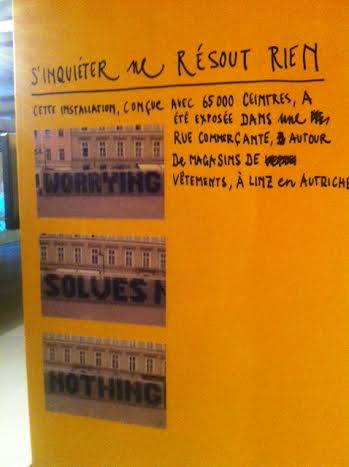 S'INQUIÉTER ne RÉSOUT RIEN
CETTE INSTALLATION, CONÇUE AVEC 65000 CEINTRES, A
ÉTÉ EXPOSÉE DANS une
RUE COMMERÇANTE, AUTOUR
De MAGASINS DE
VÊTEMENTS, À LINZ en AUTRICHE
WORRYING
SOLVES N
NOTHING